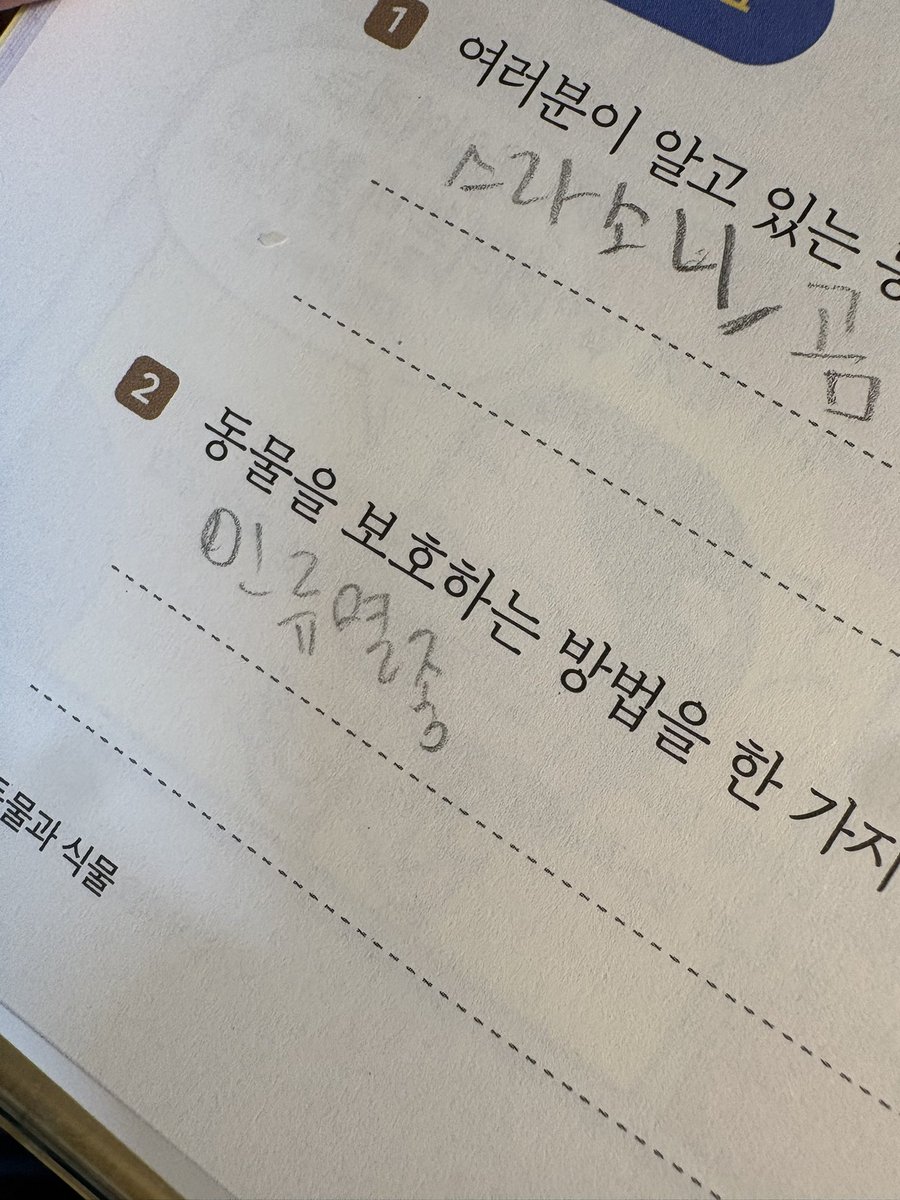 1 여러분이 알고 있는
스라소니, 곰
2 동물을 보호하는 방법을 한 가지
인류멸종
동물과 식물